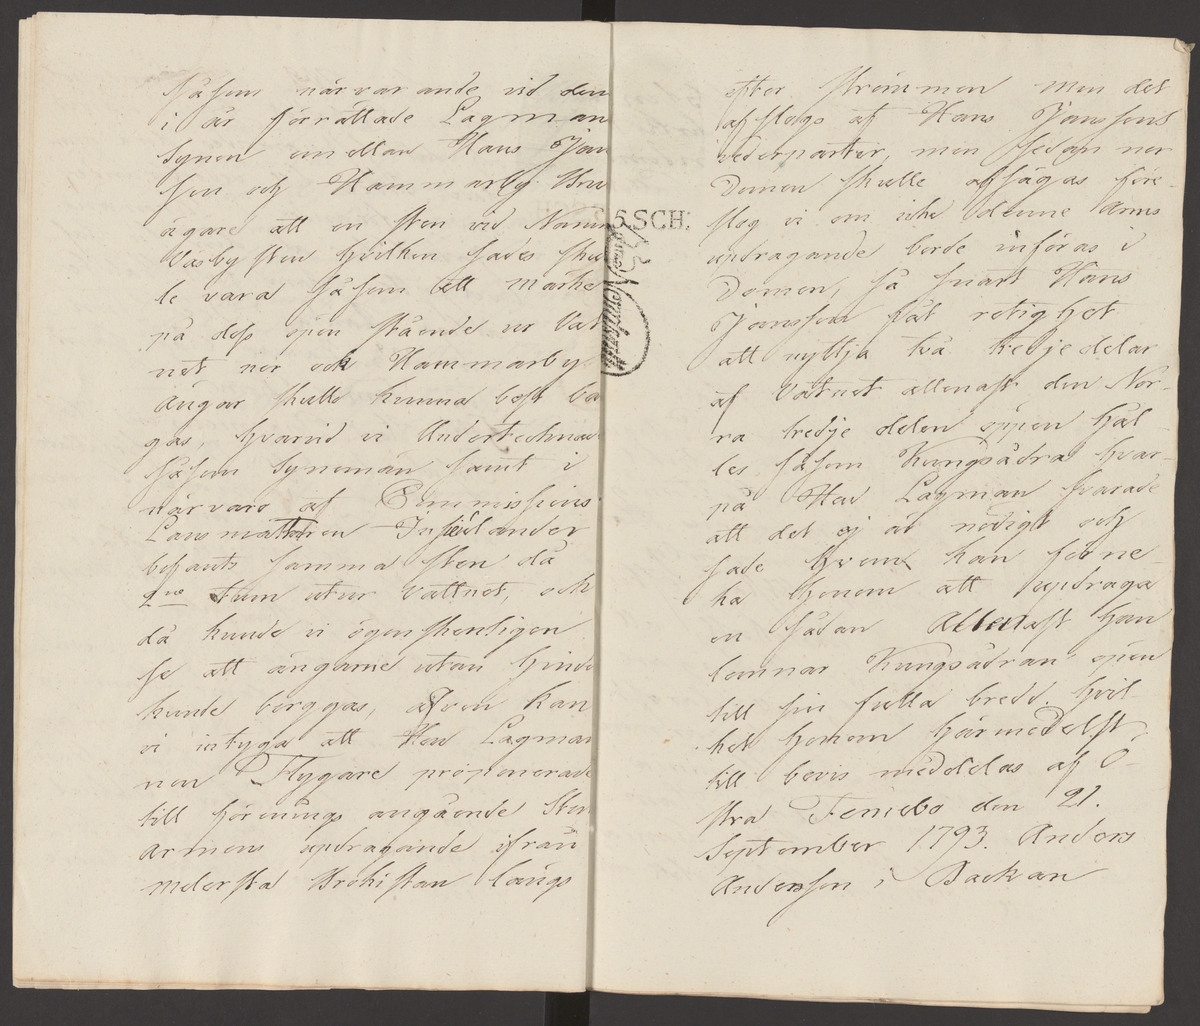 Såsom närvarande vid den
i år förrättade Lagman
Synen emellan Hans Jan
son och Hammarby Bru
ägare att en sten vid Norn
Väsby sten hvilken sades skul
le vara såsom ett märke
på dess öpen stående när Vat
net när och Hammarby
ängar skulle kunna best bär
gas, hvarvid vi Undertecknade
såsom Synemän samt i
närvaro af Commissions
Lansmätaren
befants samma sten då
2ne tum utur Vattnet, och
då kunde vi ögenskenligen
se att ängarne utan hinder
kunde berggas, äfven kan
vi intyga att Herr Lagma
nen Flygare proponerade
till förenings angående Sten
armens updragande ifrån
melersta Brokistan långs
5. SCH:
efter Strömmen men det
afslogs af Hans Janssons
vederparter, men sedan när
Domen skulle afsägas före-
slog vi om icke denne Arms
updragande borde införas i
Domen, så snart Hans
Jansson fåt retighet
att nyttja två tredje delar
af Vatnet allenast den Nor-
ra tredje delen öppen hål-
les såsom Kungsådra hvar-
på Herr Lagman svarade
att det ej är nödigt och
sade hvem kan förne-
ka honom att updraga
en sådan Allenast han
lemnar Kungsådran öpen
till sin fulla bredd. hvil-
ket honom härmedelst
till bevis meddelas af Ö-
stra Fernebo den 21.
September 1793. Anders
Andersson i Backan